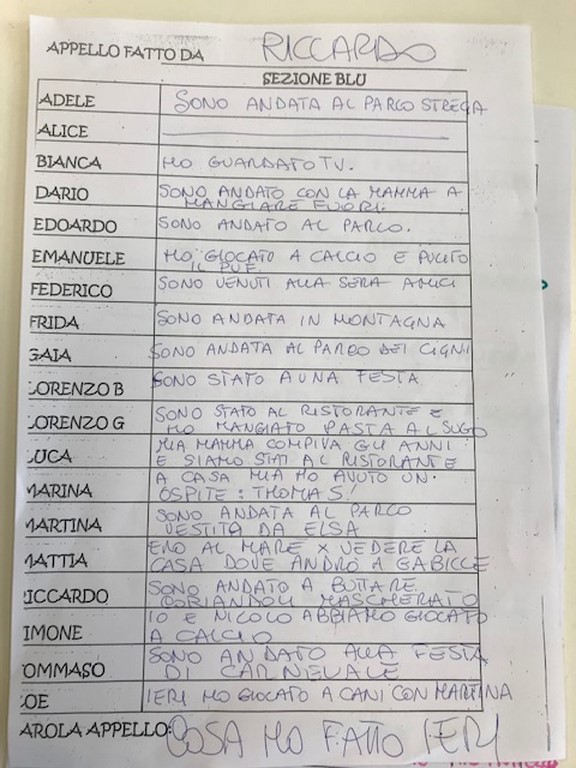 APPELLO FATTO DA RICCARDO
SEZIONE BLU
ADELE SONO ANDATA AL PARCO STREGA
ALICE
BIANCA HO GUARDATO TV.
DARIO SONO ANDATO CON LA MAMMA A
MANGIARE FUORI.
EDOARDO SONO ANDATO AL PARCO.
EMANUELE HO GIOCATO A CALCIO E PULITO
IL
FEDERICO SONO VENUTI ALLA SERA AMICI
FRIDA SONO ANDATA IN MONTAGNA
GAIA SONO ANDATA AL PARCO DEI CIGNI
LORENZO B SONO STATO A UNA FESTA
LORENZO G SONO STATO AL RISTORANTE E
HO MANGIATO PASTA AL SUGO
LUCA MIA MAMMA COMPIVA GLI ANNI
E SIAMO STATI AL RISTORANTE
MARINA A CASA MIA HO AVUTO UN
OSPITE: THOMAS!
MARTINA SONO ANDATA AL PARCO
VESTITA DA ELSA
MATTIA ERO AL MARE X VEDERE LA
CASA DOVE ANDRÒ A GABICCE
RICCARDO SONO ANDATO A BUTTARE
CORIANDOLI MASCHERATO
IMONE IO E NICOLO ABBIAMO GIOCATO
A CALCIO
TOMMASO SONO ANDATO ALLA FESTA
DI CARNEVALE
OE IERI HO GIOCATO A CANI CON MARTINA
AROLA APPELLO: COSA HO FATTO IERI